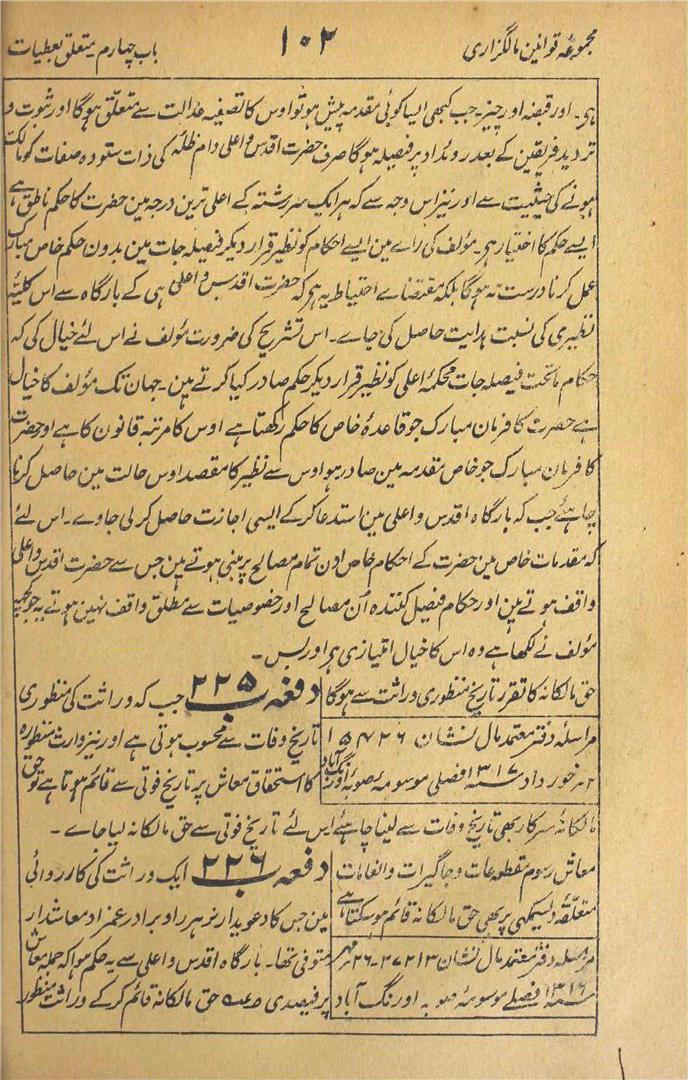 مجموعۂ قوانین مالگزاری
۱۰۲
باب چہارم متعلق بعطیات
ہی۔ اور قبضہ اور چیز۔ جب کبھی ایسا کوئی مقدمہ پیش ہو تو اوس کا تصفیہ عدالت سے متعلق ہوگا اور ثبوت و
تردید فریقین کے بعد روئداد پر فیصلہ ہوگا صرف حضرت اقدس و اعلی دام ظلہ کی ذات ستودہ صفات کو مالک
ہونے کی حیثیت سے اور نیز اس وجہ سے کہ ہر ایک سررشتہ کے اعلی ترین درجہ مین حضرت کا حکم ناطق ہے
ایسے حکم کا اختیار ہی۔ مؤلف کی راے مین ایسے احکام کو نظیر قرار دیکر فیصلہ جات مین بدون حکم خاص مبارک
عمل کرنا درست نہ ہوگا بلکہ مقتضاے احتیاط یہ ہی کہ حضرت اقدس و اعلی ہی کے بارگاہ سے اس کلیۂ
نظیری کی نسبت ہدایت حاصل کی جاے۔ اس تشریح کی ضرورت مؤلف نے اس لئے خیال کی کہ
حکام ماتحت فیصلہ جات محکمۂ اعلی کو نظیر قرار دیکر حکم صادر کیا کرتے ہین۔ جہان تک مؤلف کا خیال
ہے حضرت کا فرمان مبارک جو قاعدۂ خاص کا حکم رکھتا ہے اوس کا مرتبہ قانون کا ہے اور حضرت
کا فرمان مبارک جو خاص مقدمہ مین صادر ہو اوس سے نظیر کا مقصد اوس حالت مین حاصل کرنا
چاہئے جب کہ بارگاہ اقدس و اعلی مین استدعا کر کے ایسی اجازت حاصل کر لی جاوے۔ اس لئے
کہ مقدمات خاص مین حضرت کے احکام خاص اون تمام مصالح پر مبنی ہوتے ہین جس سے حضرت اقدس و اعلی
واقف ہوتے ہین اور حکام فیصل کنندہ اُن مصالح اور خصوصیات سے مطلق واقف نہین ہوتے یہ جو کچھ
مؤلف نے لکھا ہے وہ اس کا خیال امتیازی ہی اور بس۔
حق مالکانہ کا تقرر تاریخ منظوری وراثت سے ہوگا
مراسلہ دفتر معتمد مال نشان
خورداد ۱۳۱۷ فصلی موسومۂ صوبہ اورنگ آباد
دفعہ ۲۲۵ جب کہ وراثت کی منظوری
تاریخ وفات سے محسوب ہوتی ہے اور نیز وارث منظورہ
کا استحقاق معاش پر تاریخ فوتی سے قائم ہوتا ہے تو حق
مالکانہ سرکار بھی تاریخ وفات سے لینا چاہئے اس لئے تاریخ فوتی سے حق مالکانہ لیا جاے۔
معاش رسوم مقطعات و جاگیرات و انعامات
متعلقہ دیسمکہی پر بھی حق مالکانہ قائم ہوسکتا ہے
مراسلہ دفتر معتمد مال نشان ۲۷۲۱۳۔ ۲۶ مہر
۱۳۱۶ فصلی موسومۂ صوبہ اورنگ آباد
دفعہ ۲۲۶ ایک وراثت کی کارروائی
مین جس کا دعویدار نوہر راو برادر عمزاد معاشدار
متوفی تھا۔ بارگاہ اقدس و اعلی سے یہ حکم ہوا کہ جملہ معاش
پر فیصدی حق مالکانہ قائم کر کے وراثت منظور